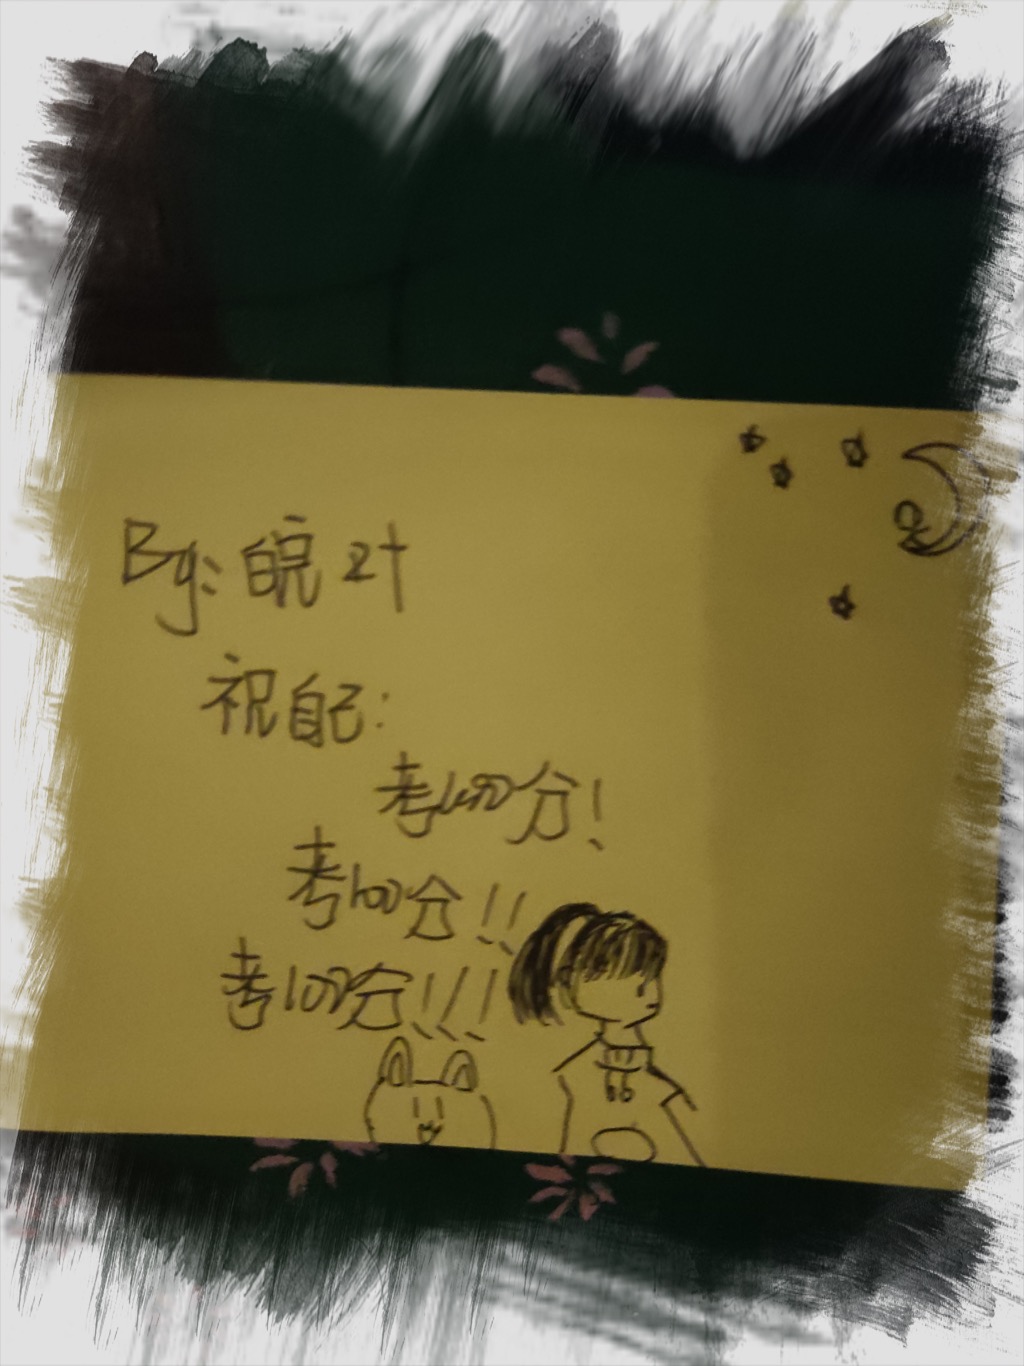 By: 皖叶
祝自己:
考100分!
考100分!!
考100分!!!